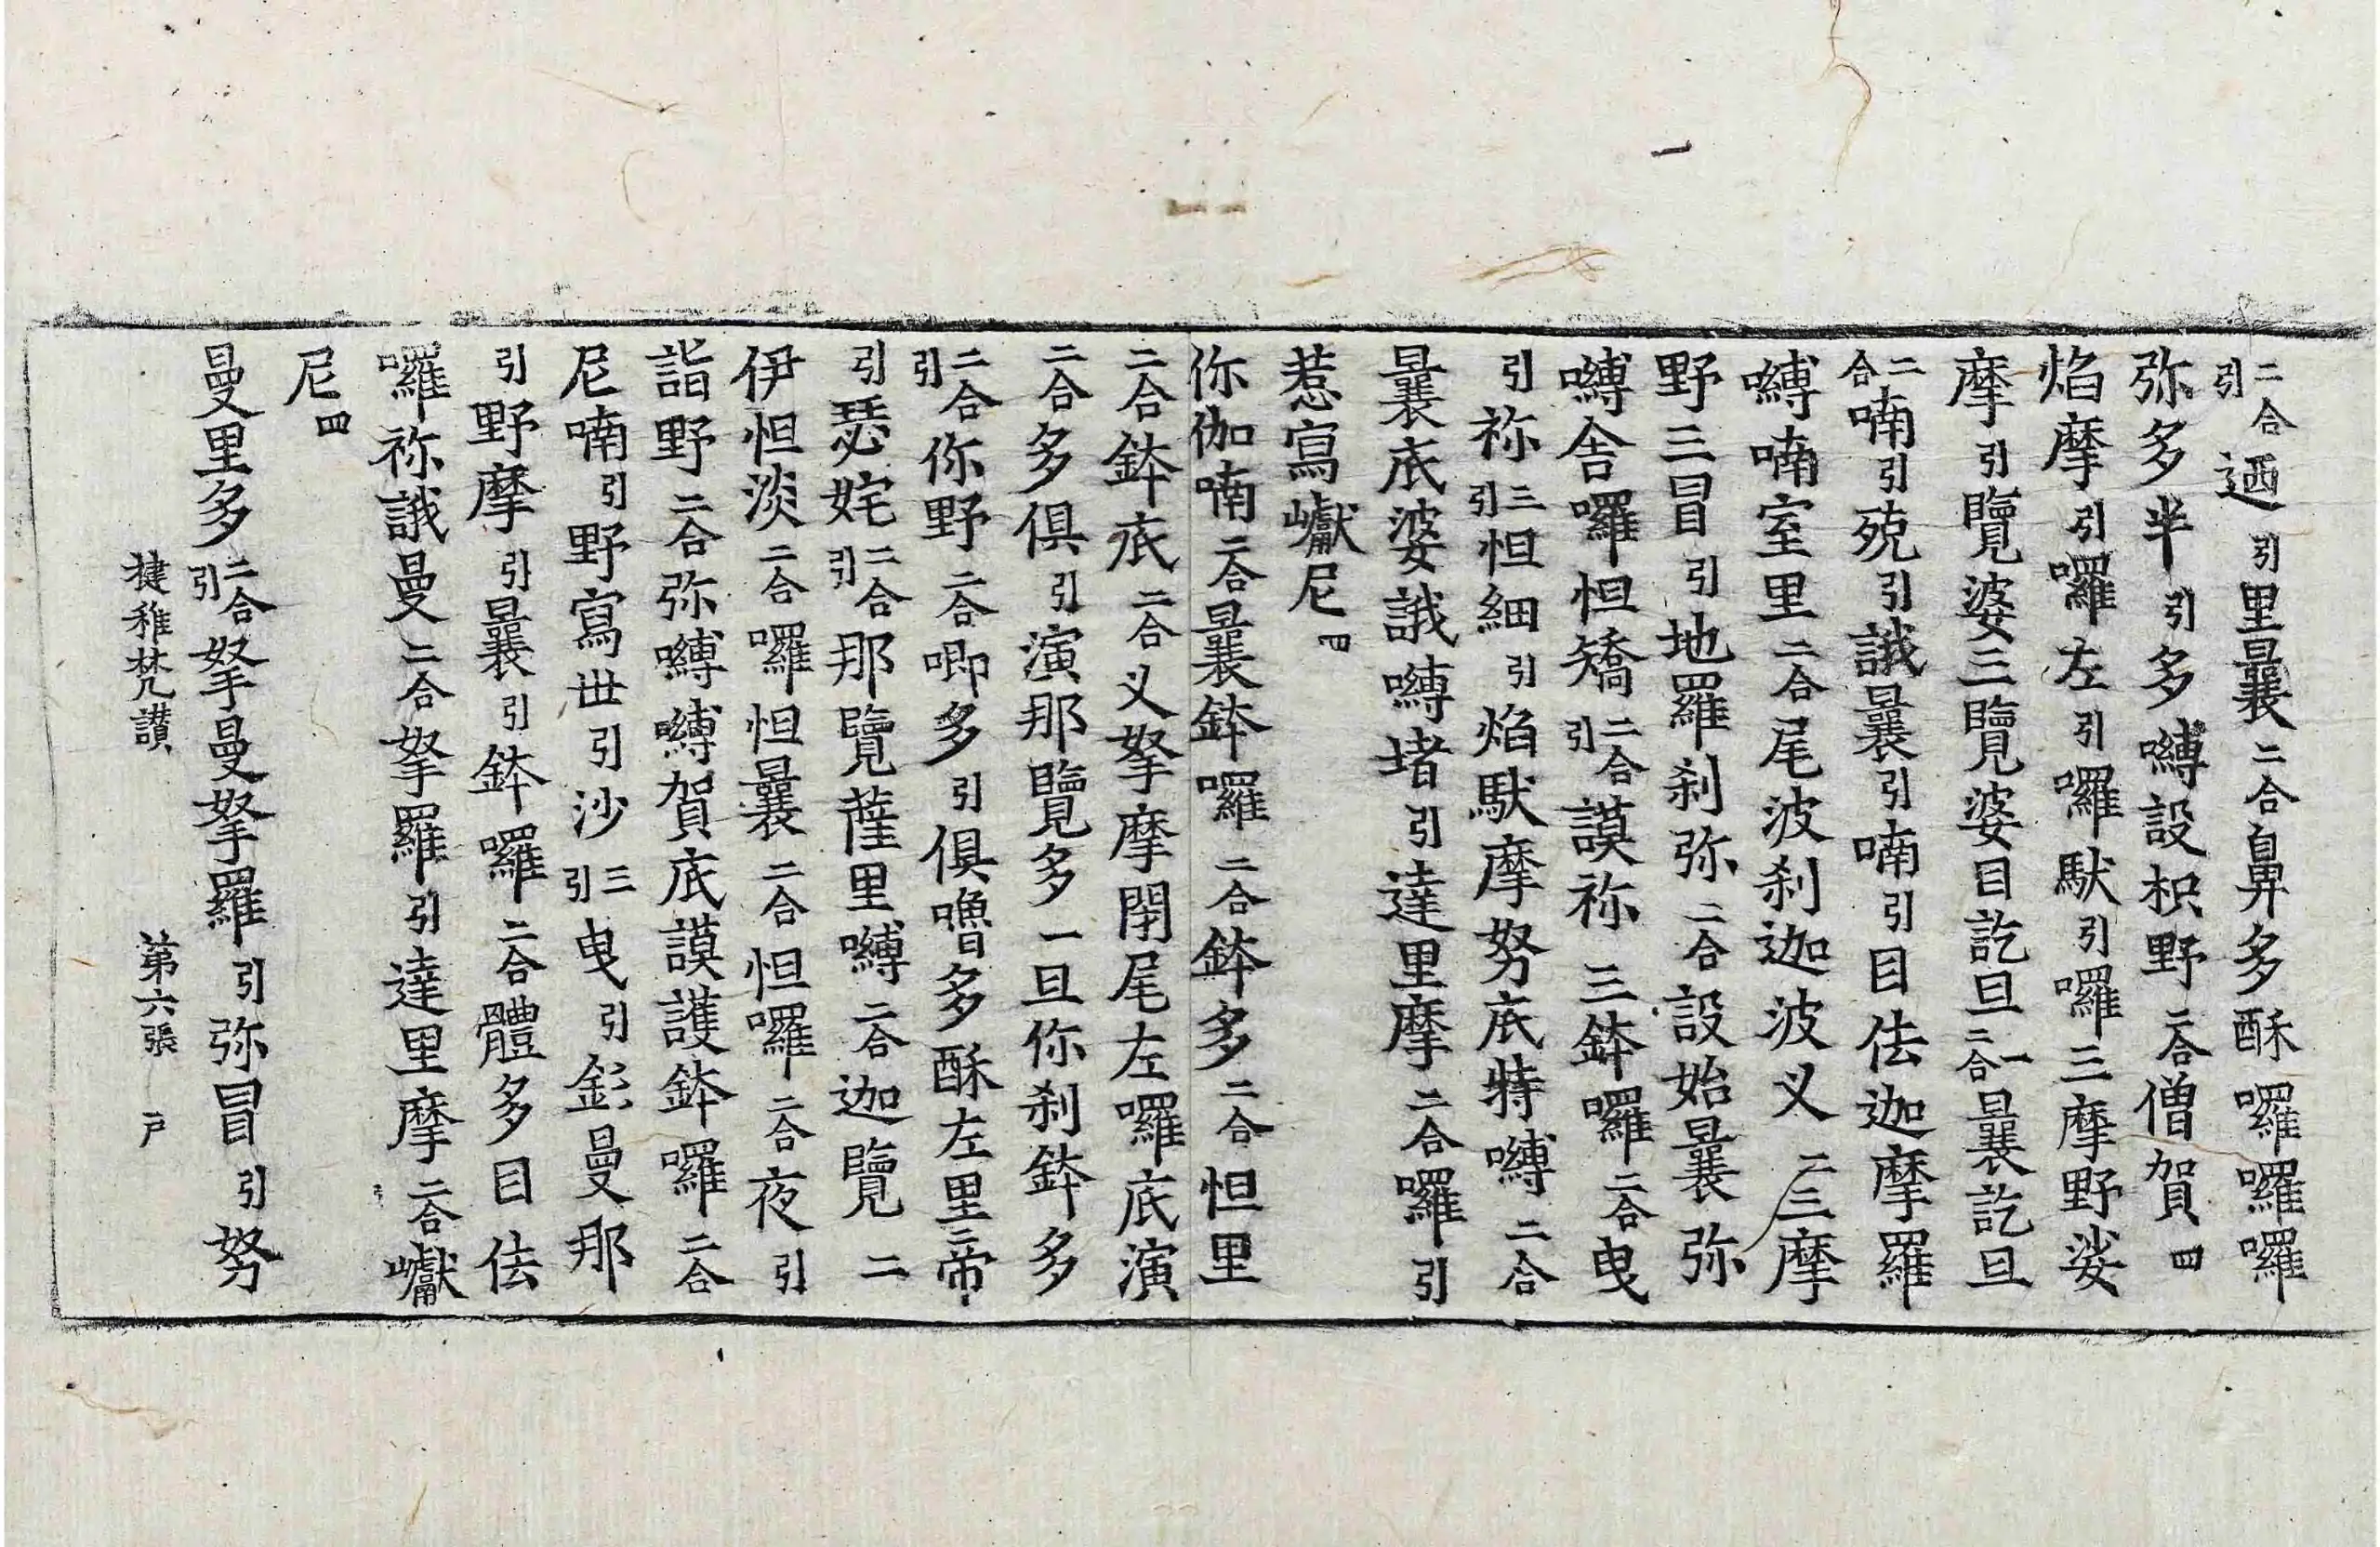 二合引迺引里曩二合鼻多酥囉囉囉
弥多半引多嚩設枳野二合僧賀四
焰摩引囉左引囉馱引囉三摩野娑
摩引覽婆三覽婆目訖旦二合一曩訖旦
二合喃引殑引誐曩引喃引目佉迦摩羅
嚩喃室里二合尾波刹迦波义二三摩
野三冒引地羅刹弥二合設始曩弥
嚩舍囉怛矯二合引謨祢三鉢囉二合曳
引祢三引怛細引焰馱摩努底特嚩二合
曩底婆誐嚩堵引達里摩二合羅引
惹寫巘尼四
你伽喃二合曩鉢囉二合鉢多二合怛里
二合鉢底二合义拏摩閉尾左囉底演
二合多俱引演那覽多一旦你刹鉢多
二合引你野二合唧多引俱嚕多酥左里二帝
引瑟姹二合引那覽薩里嚩二合迦覽二
伊怛淡二合囉怛曩二合怛囉二合夜引
詣野二合弥嚩嚩賀底謨護鉢囉二合
尼喃引野寫世引沙三引曳引鉖曼那
引野摩引曩引鉢囉二合體多目佉
囉祢誐曼二合拏羅引達里摩二合巘
尼四
曼里多二合引拏曼拏羅引弥冒引努
揵稚梵讃　第六張　戸